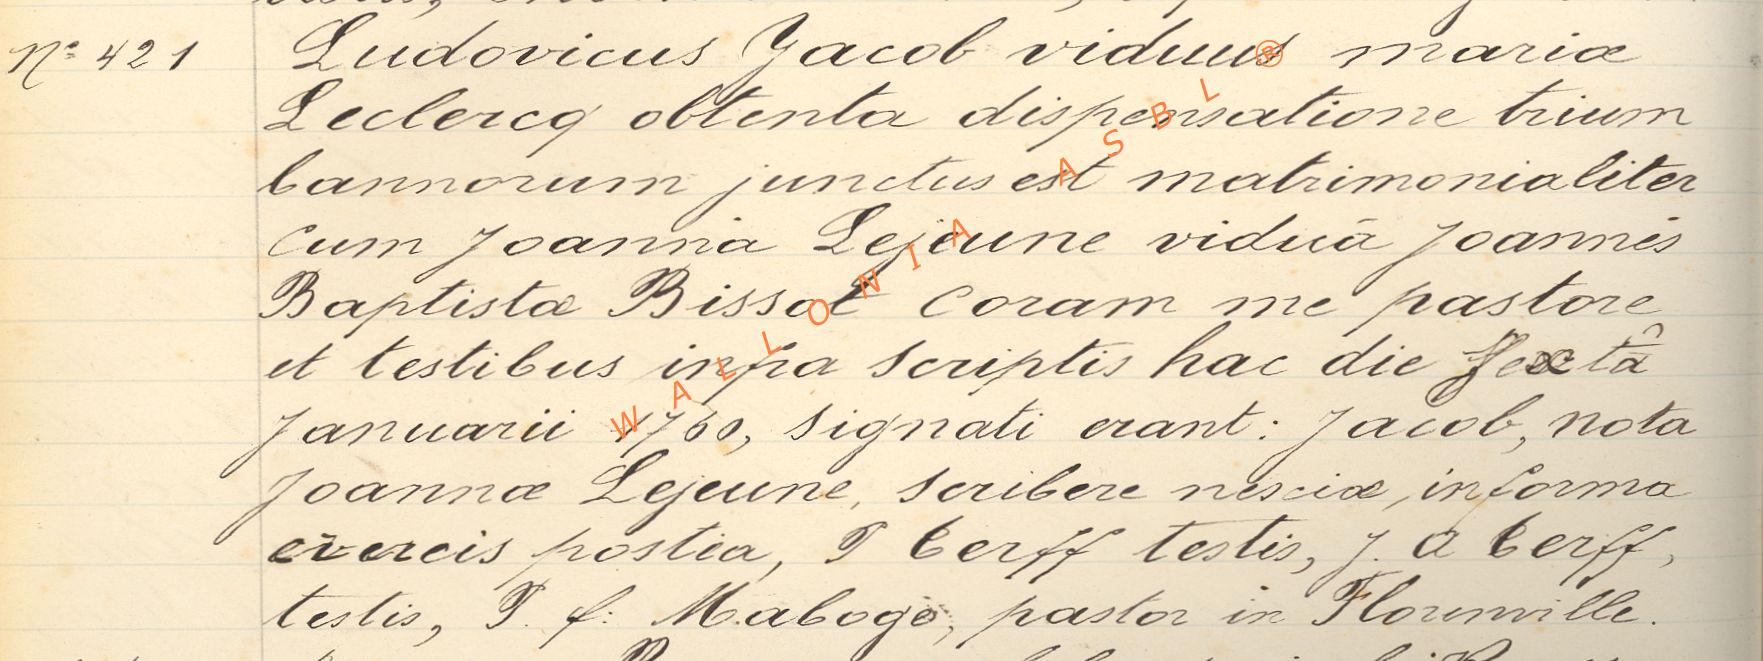 N° 421 Ludovicus Jacob viduus mariæ
Leclercq obtenta dispensatione trium
bannorum junctus est matrimonialiter
cum Joanna Lejeune viduâ Joannes
Baptistæ Bissot coram me pastore
et testibus infra scriptis hac die sextâ
Januarii 1760, signati erant: Jacob, nota
Joannæ Lejeune, scribere nesciæ, informa
crucis postea, P Cerff testis, J. A Cerff,
testis, P. f: Maboge, pastor in Florenville.
WALLONIA ASBL ®